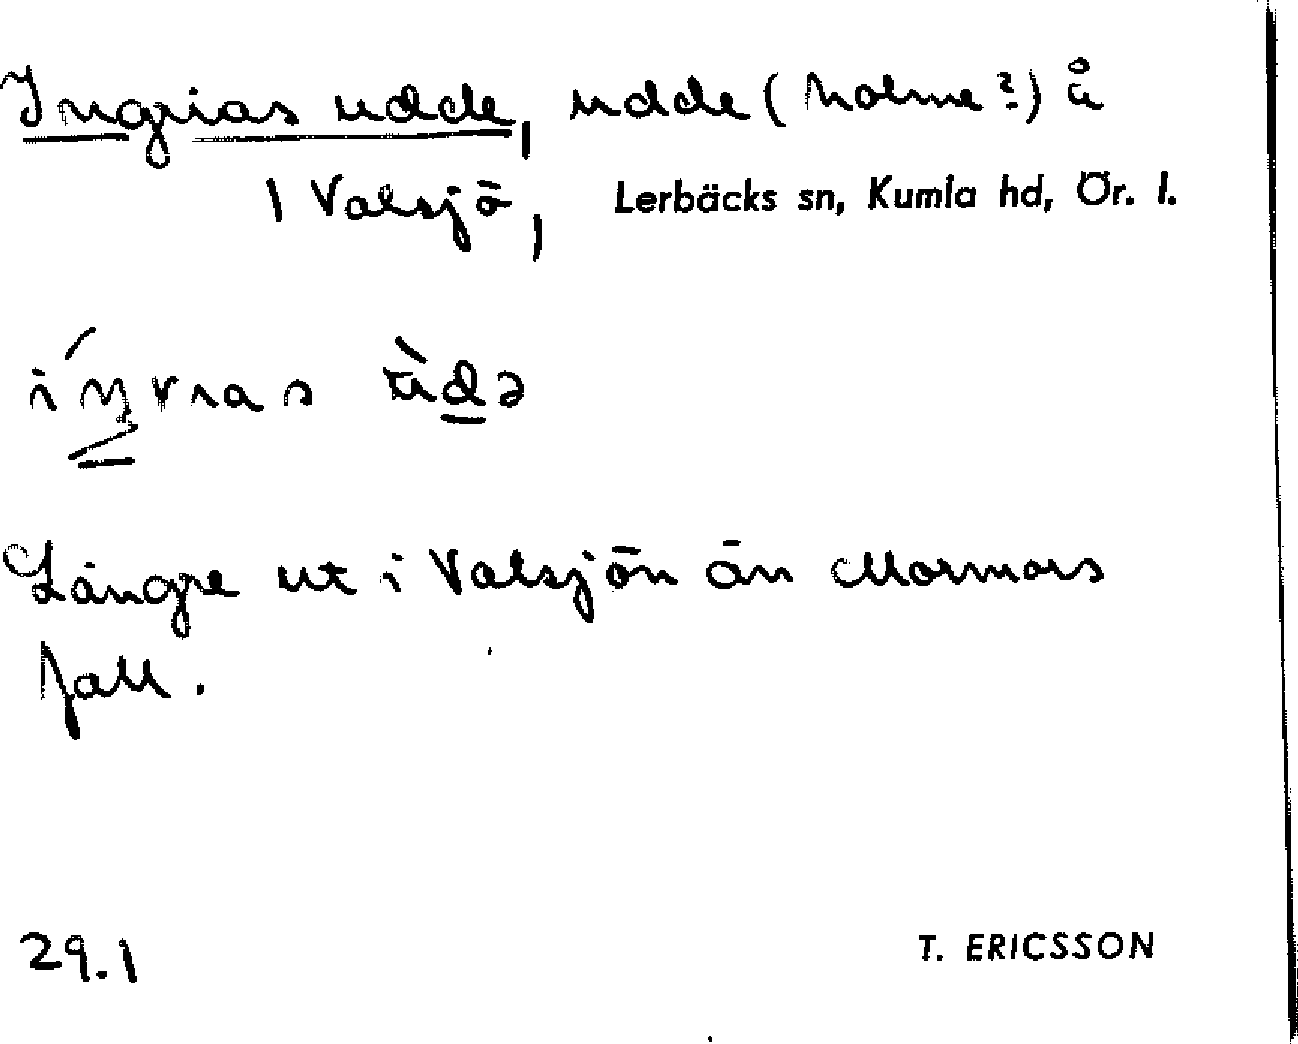 Ingrias udde, udde (holme?) å
| Valsjö, Lerbäcks sn, Kumla hd, Ör. l.
Längre ut i Valsjön än Mormors
fall.
29.1 T. ERICSSON